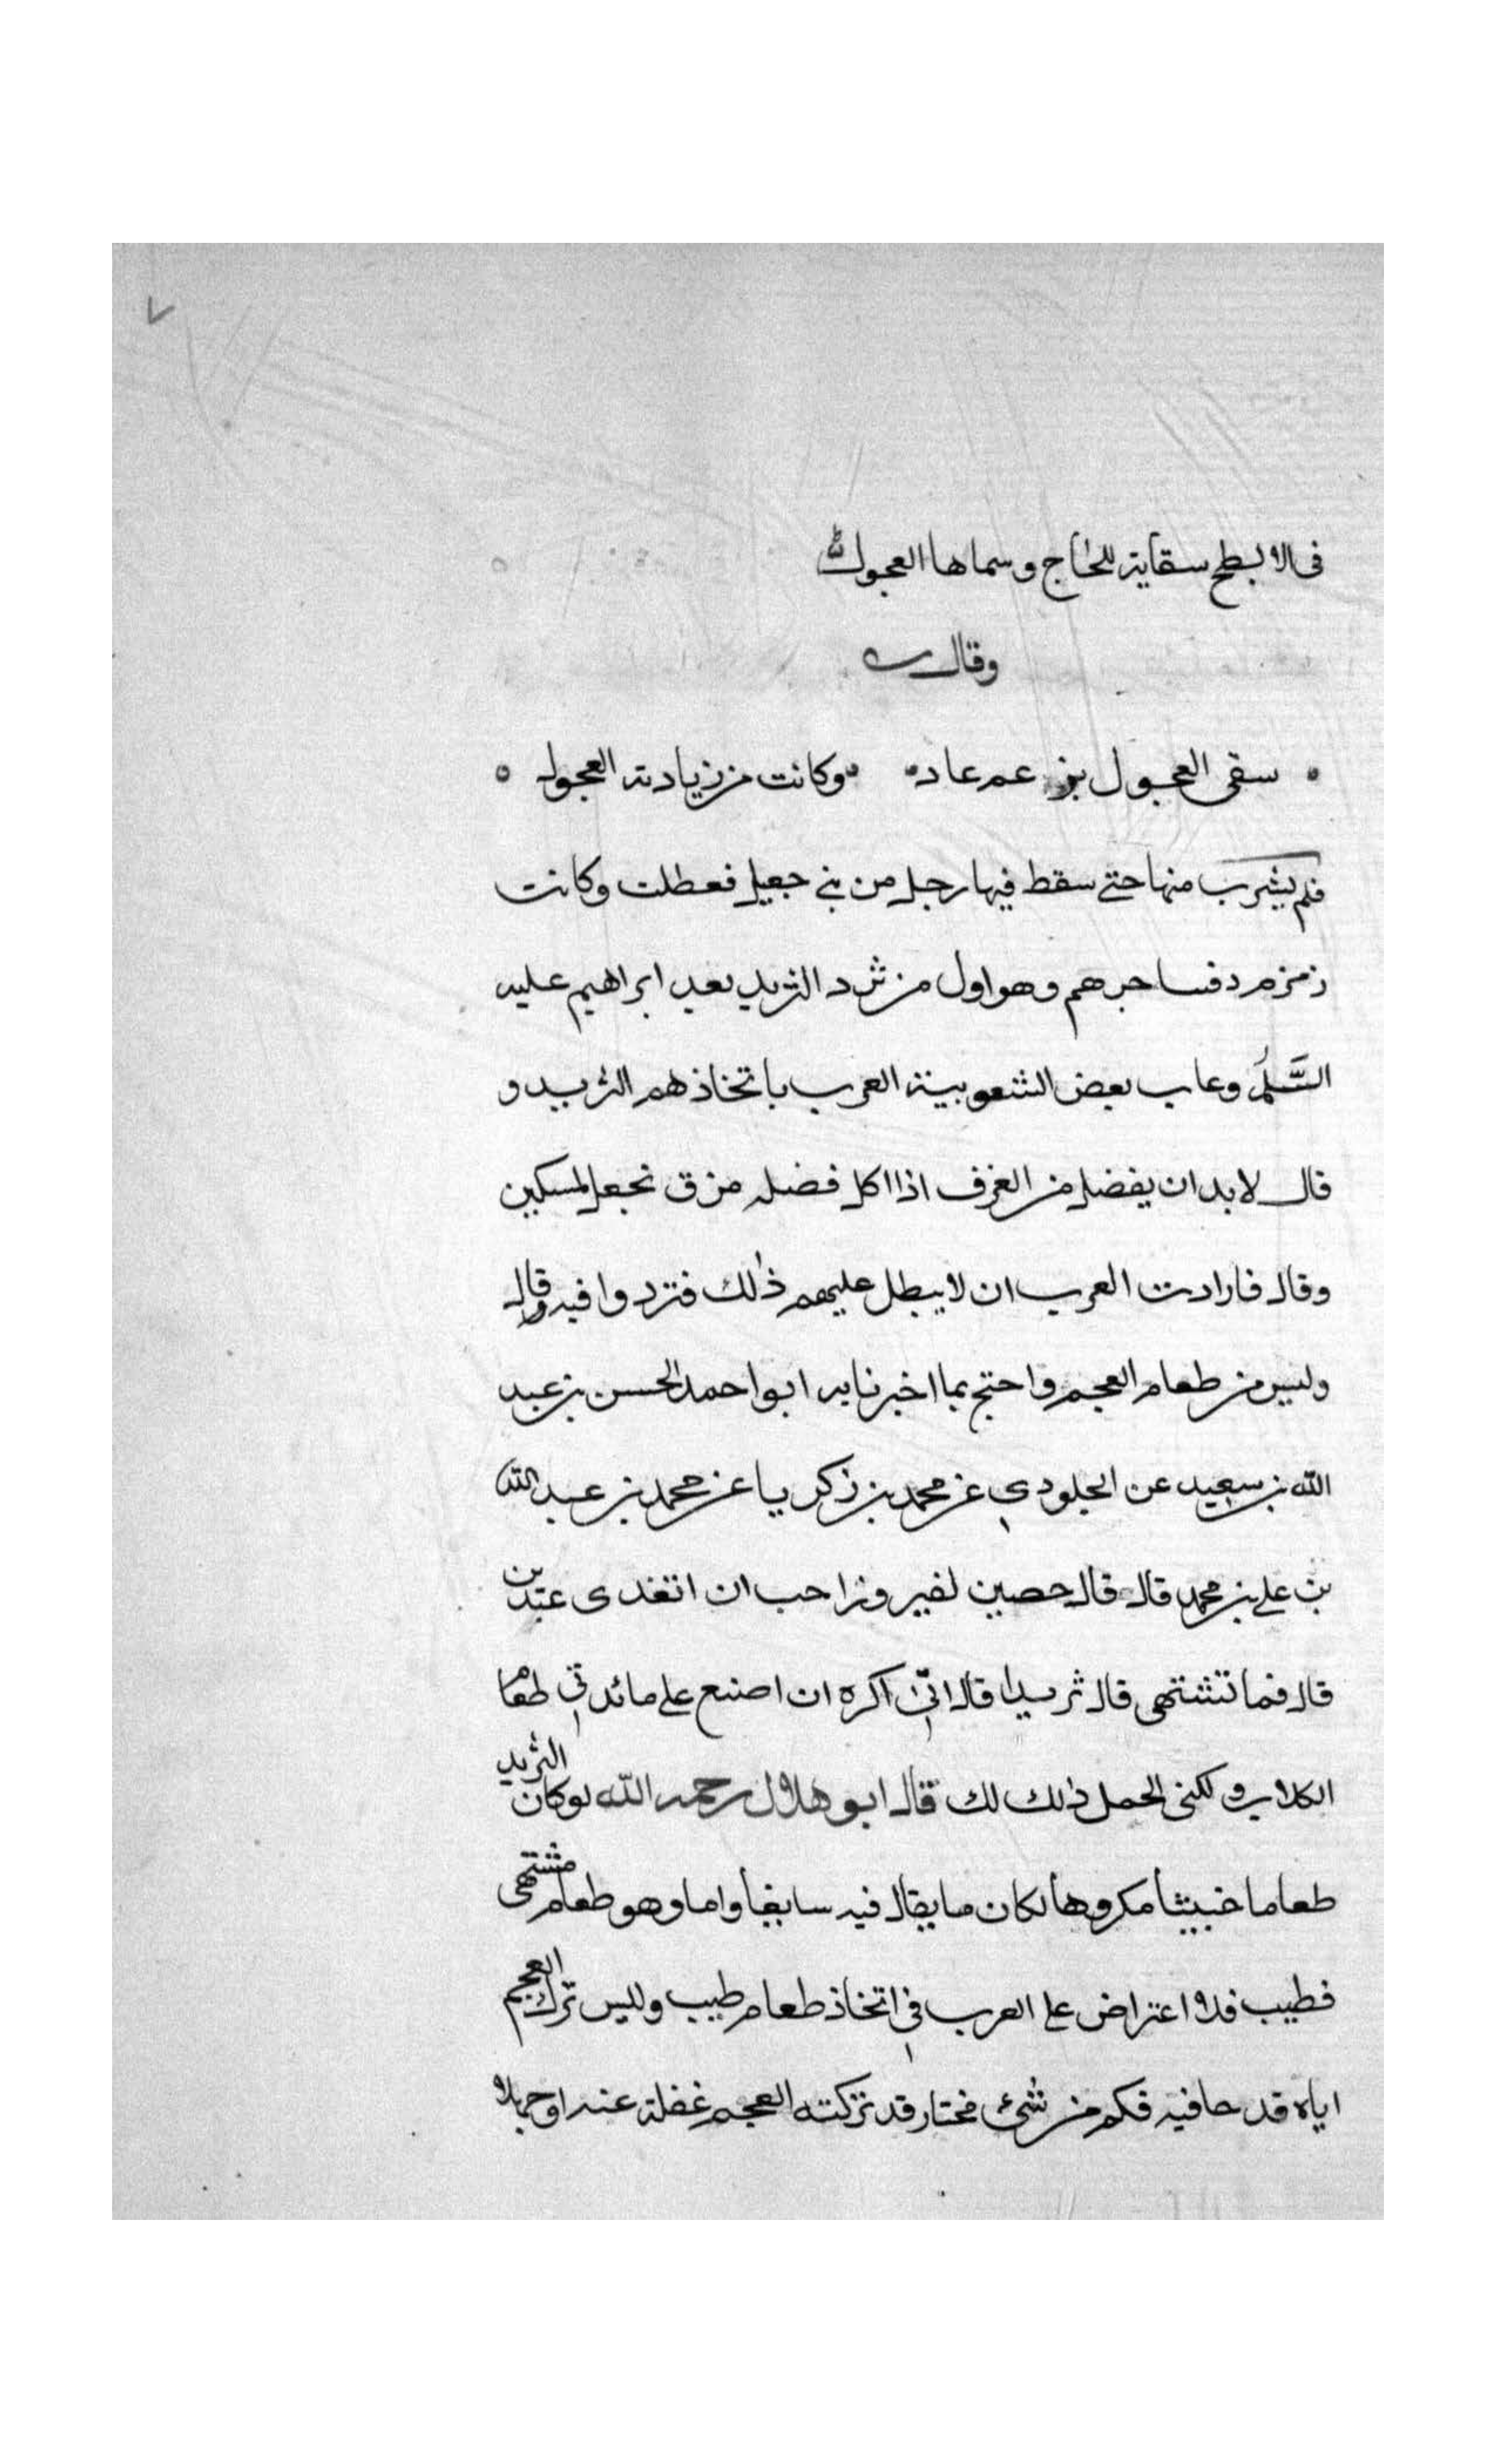 ٧
فى الابطح سقاية للحاج وسماها العجول
وقال
سقى العجول بن عم عاد وكانت من زيادته العجول
فلم يشرب منها حتى سقط فيها رجل من بنى جعيل فعطلت وكانت
زمزم دفنتها جرهم وهو اول من ثرد الثريد بعد ابراهيم عليه
السَّلم وعاب بعض الشعوبية العرب باتخاذهم الثريد و
قال لا بد ان يفضل من الغرف اذا اكل فضله مرق نجعل لمسكين
وقال فارادت العرب ان لا يبطل عليهم ذلك فثردوا فيه وقال
وليس من طعام العجم واحتج بما اخبرنا به ابو احمد الحسن بن عبد
الله بن سعيد عن الجلودي عن محمد بن زكريا عن محمد بن عبد الله
بن على بن محمد قال قال حصين لفيروز احب ان اتغدى عندك
قال فما تشتهى قال ثريدا قال انّى اكره ان اصنع على مائدتى طعام
الكلاب ولكنى اتحمل ذلك لك قال ابو هلال رحمه الله لو كان الثريد
طعاما خبيثا مكروها لكان ما يقال فيه سايغا واما وهو طعام مشتهى
فطيب فلا اعتراض على العرب فى اتخاذ طعام طيب وليس ترك العجم
اياه قدحا فيه فكم من شئ مختار قد تركته العجم غفلة عنه او جهلا